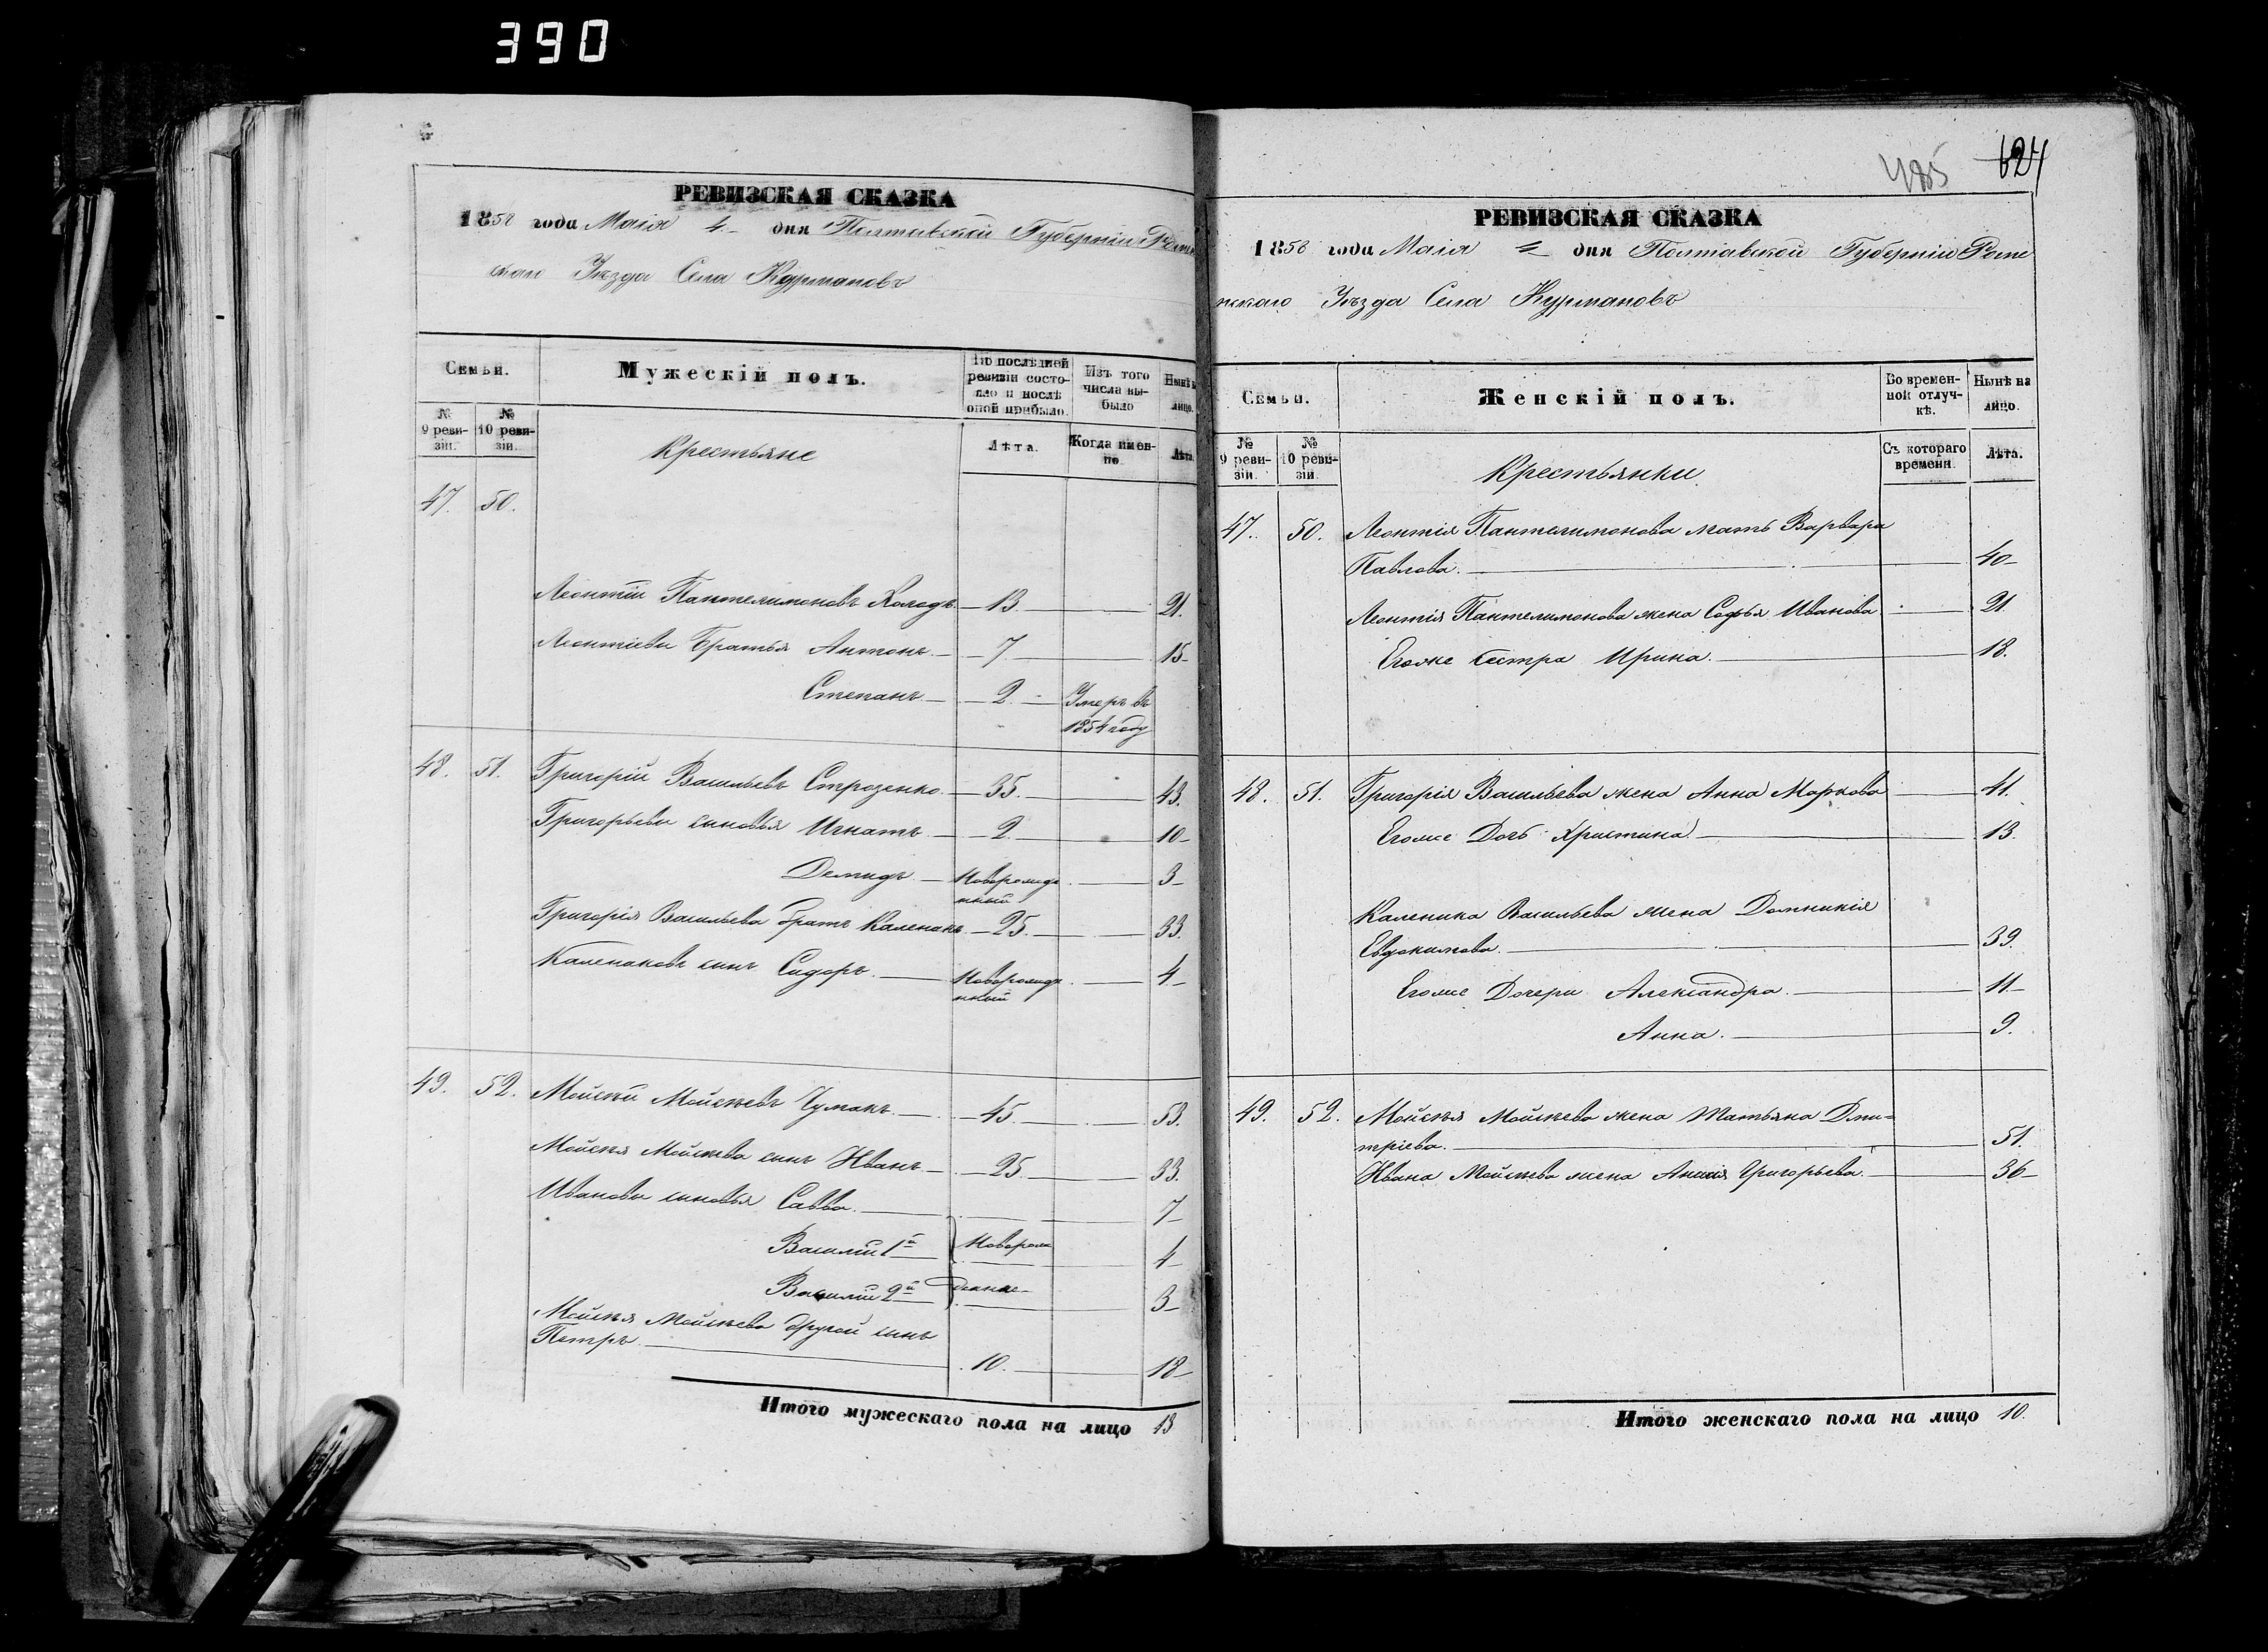 390
РЕВИЗСКАЯ СКАЗКА
1858 года Маія 4 дня Полтавской Губерніи Роме
скаго Уѣзда Села Курмановъ
Семьи.
Мужескій полъ.
По послѣдней ревизіи состояло и послѣ оной прибыло.
Изъ того числа выбыло
Нынѣ на лицо.
№ 9 ревизіи.
№ 10 ревизіи.
Крестьяне
Лѣта.
Когда именно
Лѣта
47. 50.
Леонтій Пантелимоновъ Колодъ 13 21.
Леонтіевы Братья Антонъ 7 15
Степанъ 2 Умеръ въ
1854 году
48. 51. Григорій Васильевъ Строзенко 35. 43.
Григорьевы сыновья Игнатъ 2 10
Демидъ Новорожде 3
нный
Григорія Васильева братъ Каленикъ 25. 33.
Калениковъ сынъ Сидоръ Новорожде 4
нный
49. 52. Мойсѣй Мойсѣевъ Чумакъ 45. 53.
Мойсѣя Мойсѣева сынъ Иванъ 25. 33.
Ивановы сыновья Савва 7
Василій 1й Новорож 4
Василій 2й денные 3
Мойсѣя Мойсѣева другой сынъ
Петръ 10. 18
Итого мужескаго пола на лицо 13
485 624
РЕВИЗСКАЯ СКАЗКА
1858 года Маія 4 дня Полтавской Губерніи Роме
нскаго Уѣзда Села Курмановъ
Семьи.
Женскій полъ.
Во временной отлучкѣ.
Нынѣ на лицо.
№ 9 ревизіи.
№ 10 ревизіи.
Крестьянки
Съ котораго времени.
Лѣта.
47. 50. Леонтія Пантелимонова мать Варвара
Павлова. 40
Леонтія Пантелимонова жена Софья Иванова 21.
Егоже сестра Ирина. 18.
48. 51. Григорія Васильева жена Анна Маркова 41.
Егоже Дочь Христина 13.
Каленика Васильева жена Домникія
Евдокимова. 39.
Егоже Дочери Александра. 11
Анна. 9.
49. 52. Мойсѣя Мойсѣева жена Татьяна Дми=
тріева. 51.
Ивана Мойсѣева жена Анисія Григорьева. 36
Итого женскаго пола на лицо 10.